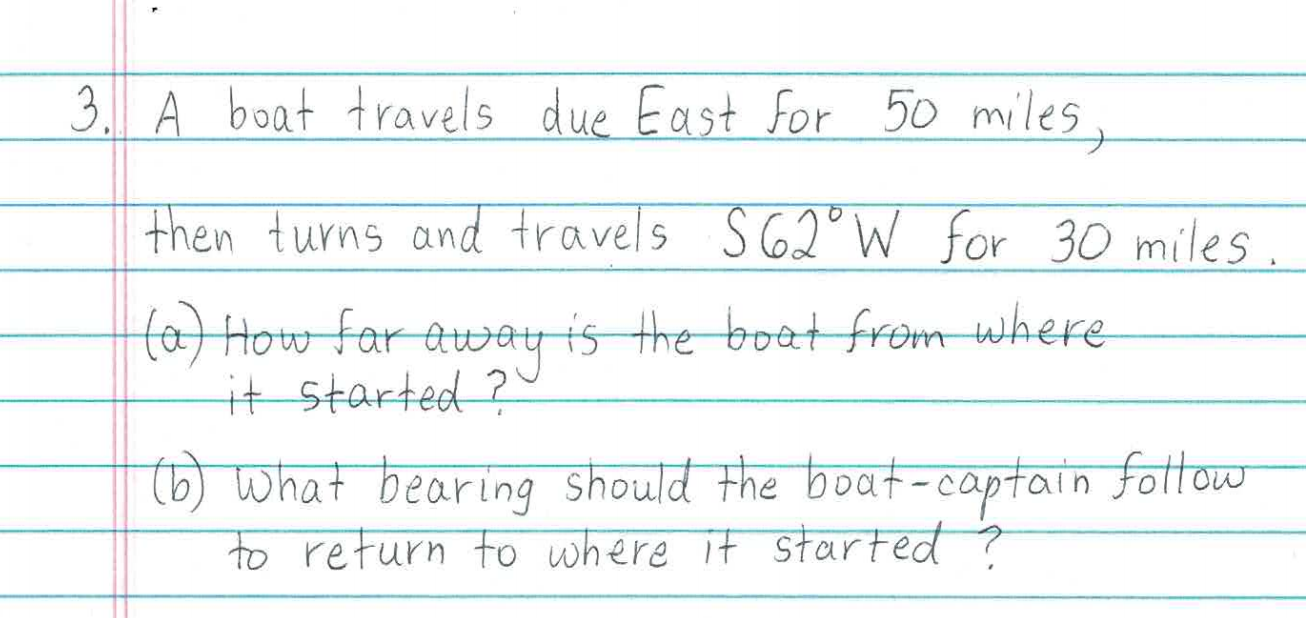 3. A boat travels due East for 50 miles,
then turns and travels S62°W for 30 miles.
(a) How far away is the boat from where
it started?
(b) What bearing should the boat-captain follow
to return to where it started?